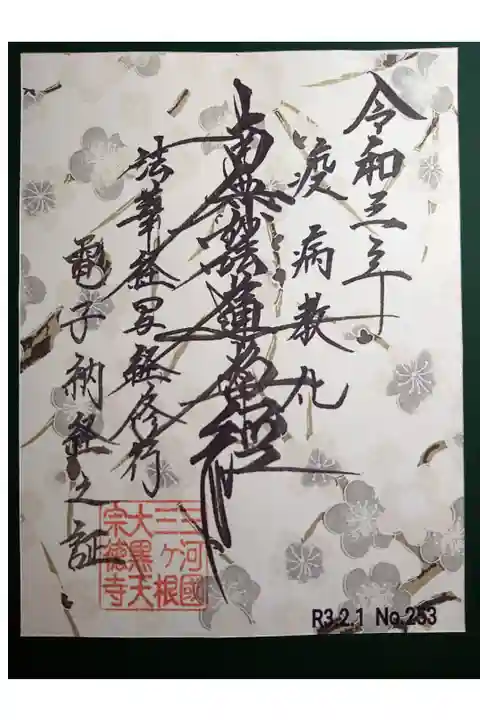 令和三年
疫病救丸
南無妙法蓮華經
法華経写経修行
電子納経之証
三河國
三ヶ根
大黒天
宗徳寺
R3.2.1 No.253